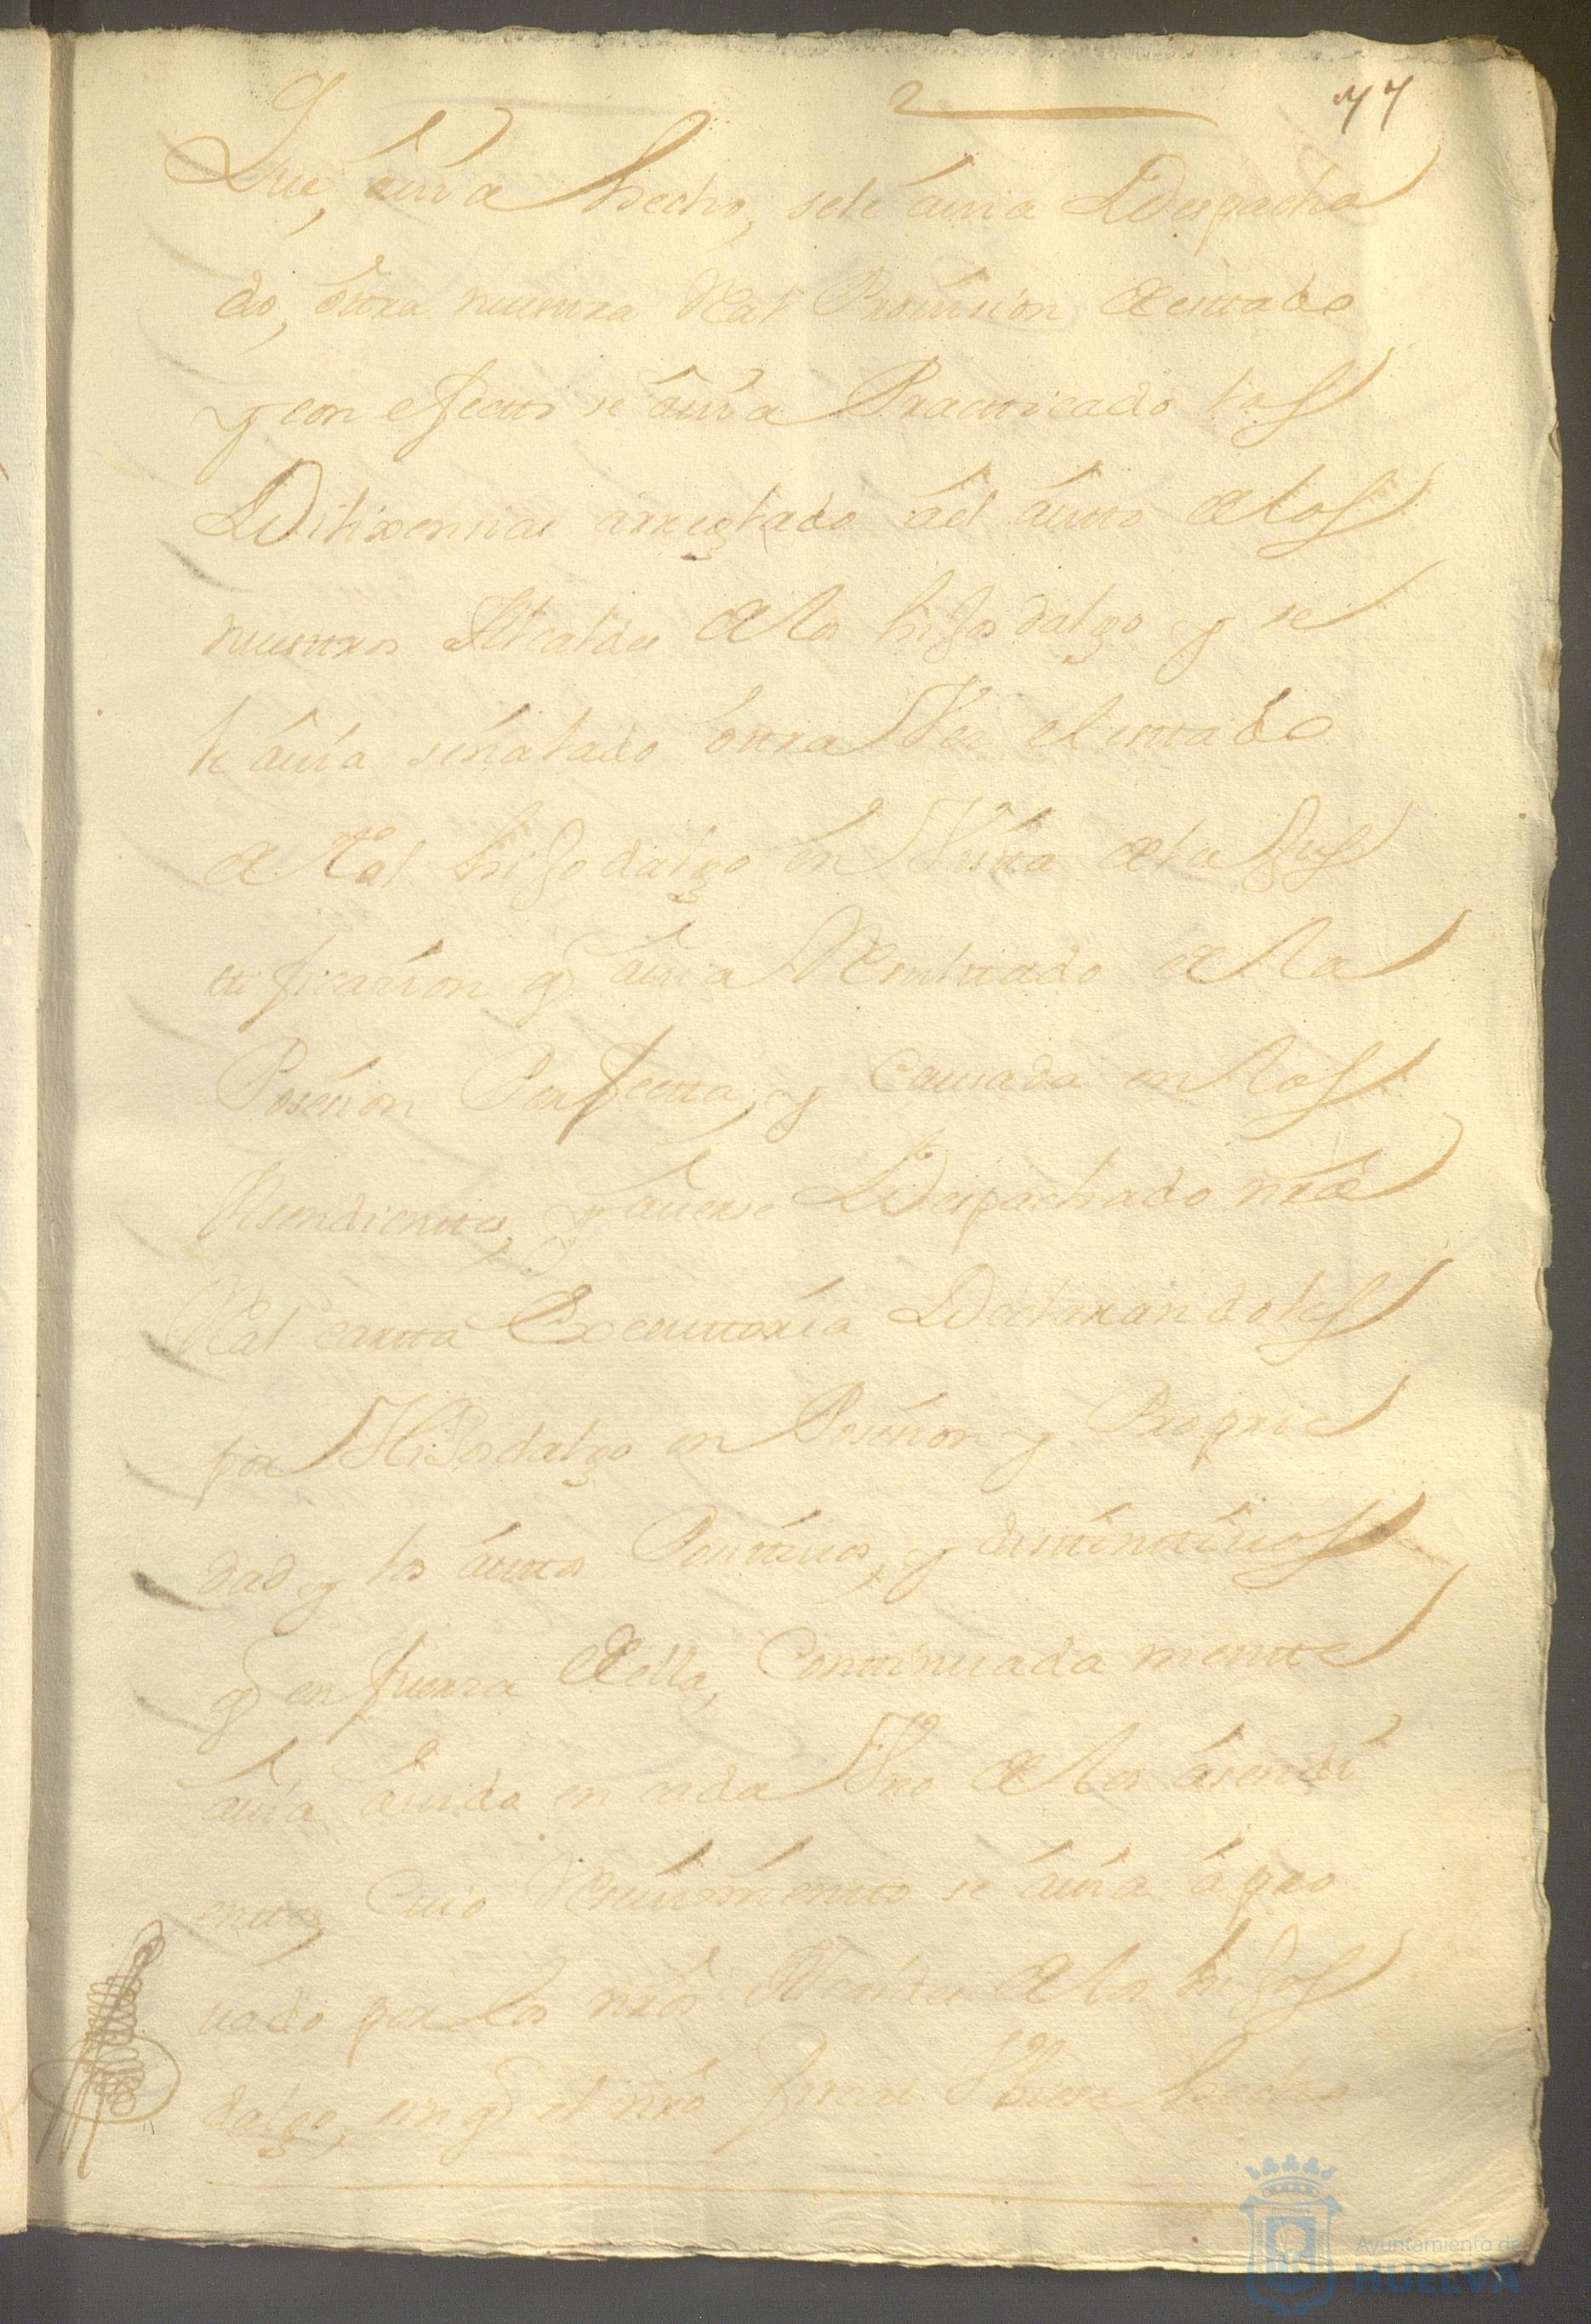 2 77
Que, auia hecho, sele auia Despacha
do, ottra nuesttra Real Prouision de esttado
y con efectto se auia Practticado las
Dilixencias arreglado ael autto de los
nuesttros Alcaldes de los hijos dalgo y se
le auia señalado ottra Vez el esttado
de tal hijo dalgo en Vistta de la Jus
ttificacion q auia Resulttado de la
Posesion Perfectta, y Causada en los
Asendienttes, y auerse Despachado nrâ
Real cartta Executtoria Declarandoles
por Hijosdalgo en Posesion y Proprie
dad y los acttos Posittiuos, y disttinttiuos
q en fuerza de ella, Conttinuada mentte
auia auido en cada Vno de los asendi
enttes, Cuio Reciuimientto se auia apro
uado por los nrôs Alcaldes de los hijos
dalgo, sin q el nrô fiscal Vbiese hecho
Ayuntamiento de
HUELVA